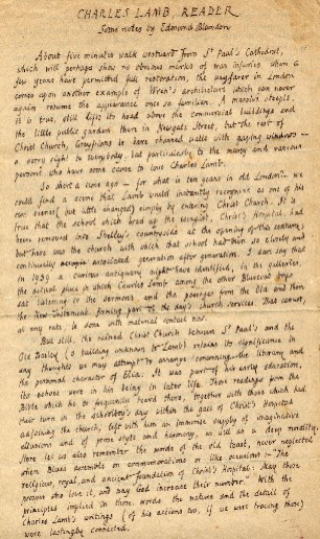 CHARLES LAMB, READER
Some notes by Edmund Blunden
About five minutes walk westward from St Paul's Cathedral,
which will perhaps show no obvious marks of war injuries when a
few years have permitted full restoration, the wayfarer in London
comes upon another example of Wren's architecture which can never
again resume the appearance once so familiar. A massive steeple,
it is true, still lifts its head above the commercial buildings and
the little public garden there in Newgate Street, but the rest of
Christ Church, Greyfriars is bare charred walls with gaping windows –
a sorry sight to everybody, but particularly to the many and various
persons who have some cause to love Charles Lamb.
So short a time ago – for what is ten years in old London? – we
could find a scene that Lamb would instantly recognize as one of his
own (buried, but little changed) simply by entering Christ Church. It is
true that the school which kept up the liveliest, Christ's Hospital, had
been removed into Shelley's countryside at the opening of this century,
but here was the church with which that school had been so closely and
continually associated generation after generation. I dare say that
in 1939 a curious antiquary might have identified, in the galleries,
the actual place in which Charles Lamb among the other Bluecoat boys
sat listening to the sermons and the passages from the Old and then
the New Testament forming part of the day's church services. That corner,
at any rate, is done with material contact now.
But still, the ruined Christ Church between St Paul's and the
Old Bailey (a building unknown to Lamb) retains its significance in
any thoughts we may attempt to arrange concerning the literary and
the personal character of Elia. It was part of his early education,
its echoes were in his being in later life. Those readings from the
Bible which he so frequently heard there, together with those which had
their turn in the schoolboy's day within the gates of Christ's Hospital
adjoining the church, left with him an immense supply of imaginative
allusions and of some style and harmony, as well as a deep morality.
Here let us also remember the words of the old toast, never neglected
when Blues assemble on commemorations or like occasions – "The
religious, royal, and ancient foundation of Christ's Hospital. May those
prosper who love it, and may God increase their number." With the
principles implied in these words the nature and the detail of
Charles Lamb's writings (of his actions too, if we were tracing those)
were lastingly connected.